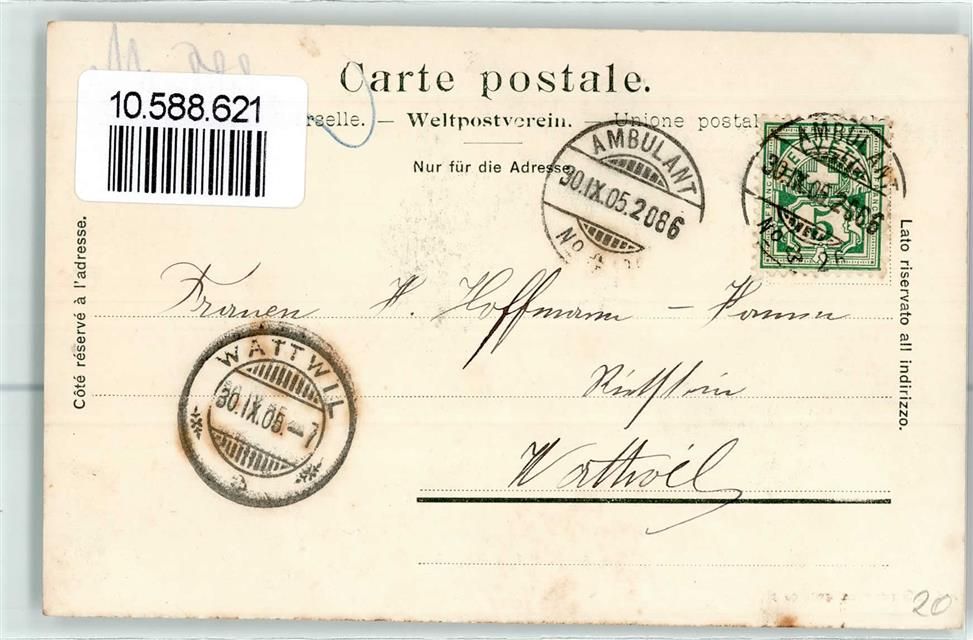 Carte postale.
10.588.621
rselle. — Weltpostverein. — Unione postal
Nur für die Adresse
AMBULANT
30.IX.05.2086
No
AMBULANT
HELVETIA
30.IX.05.2086
5
No
Côté réservé à l'adresse.
Lato riservato all indirizzo.
Frauen H. Hoffmann -
WATTWIL
30.IX.05.-7
Wattwil
20